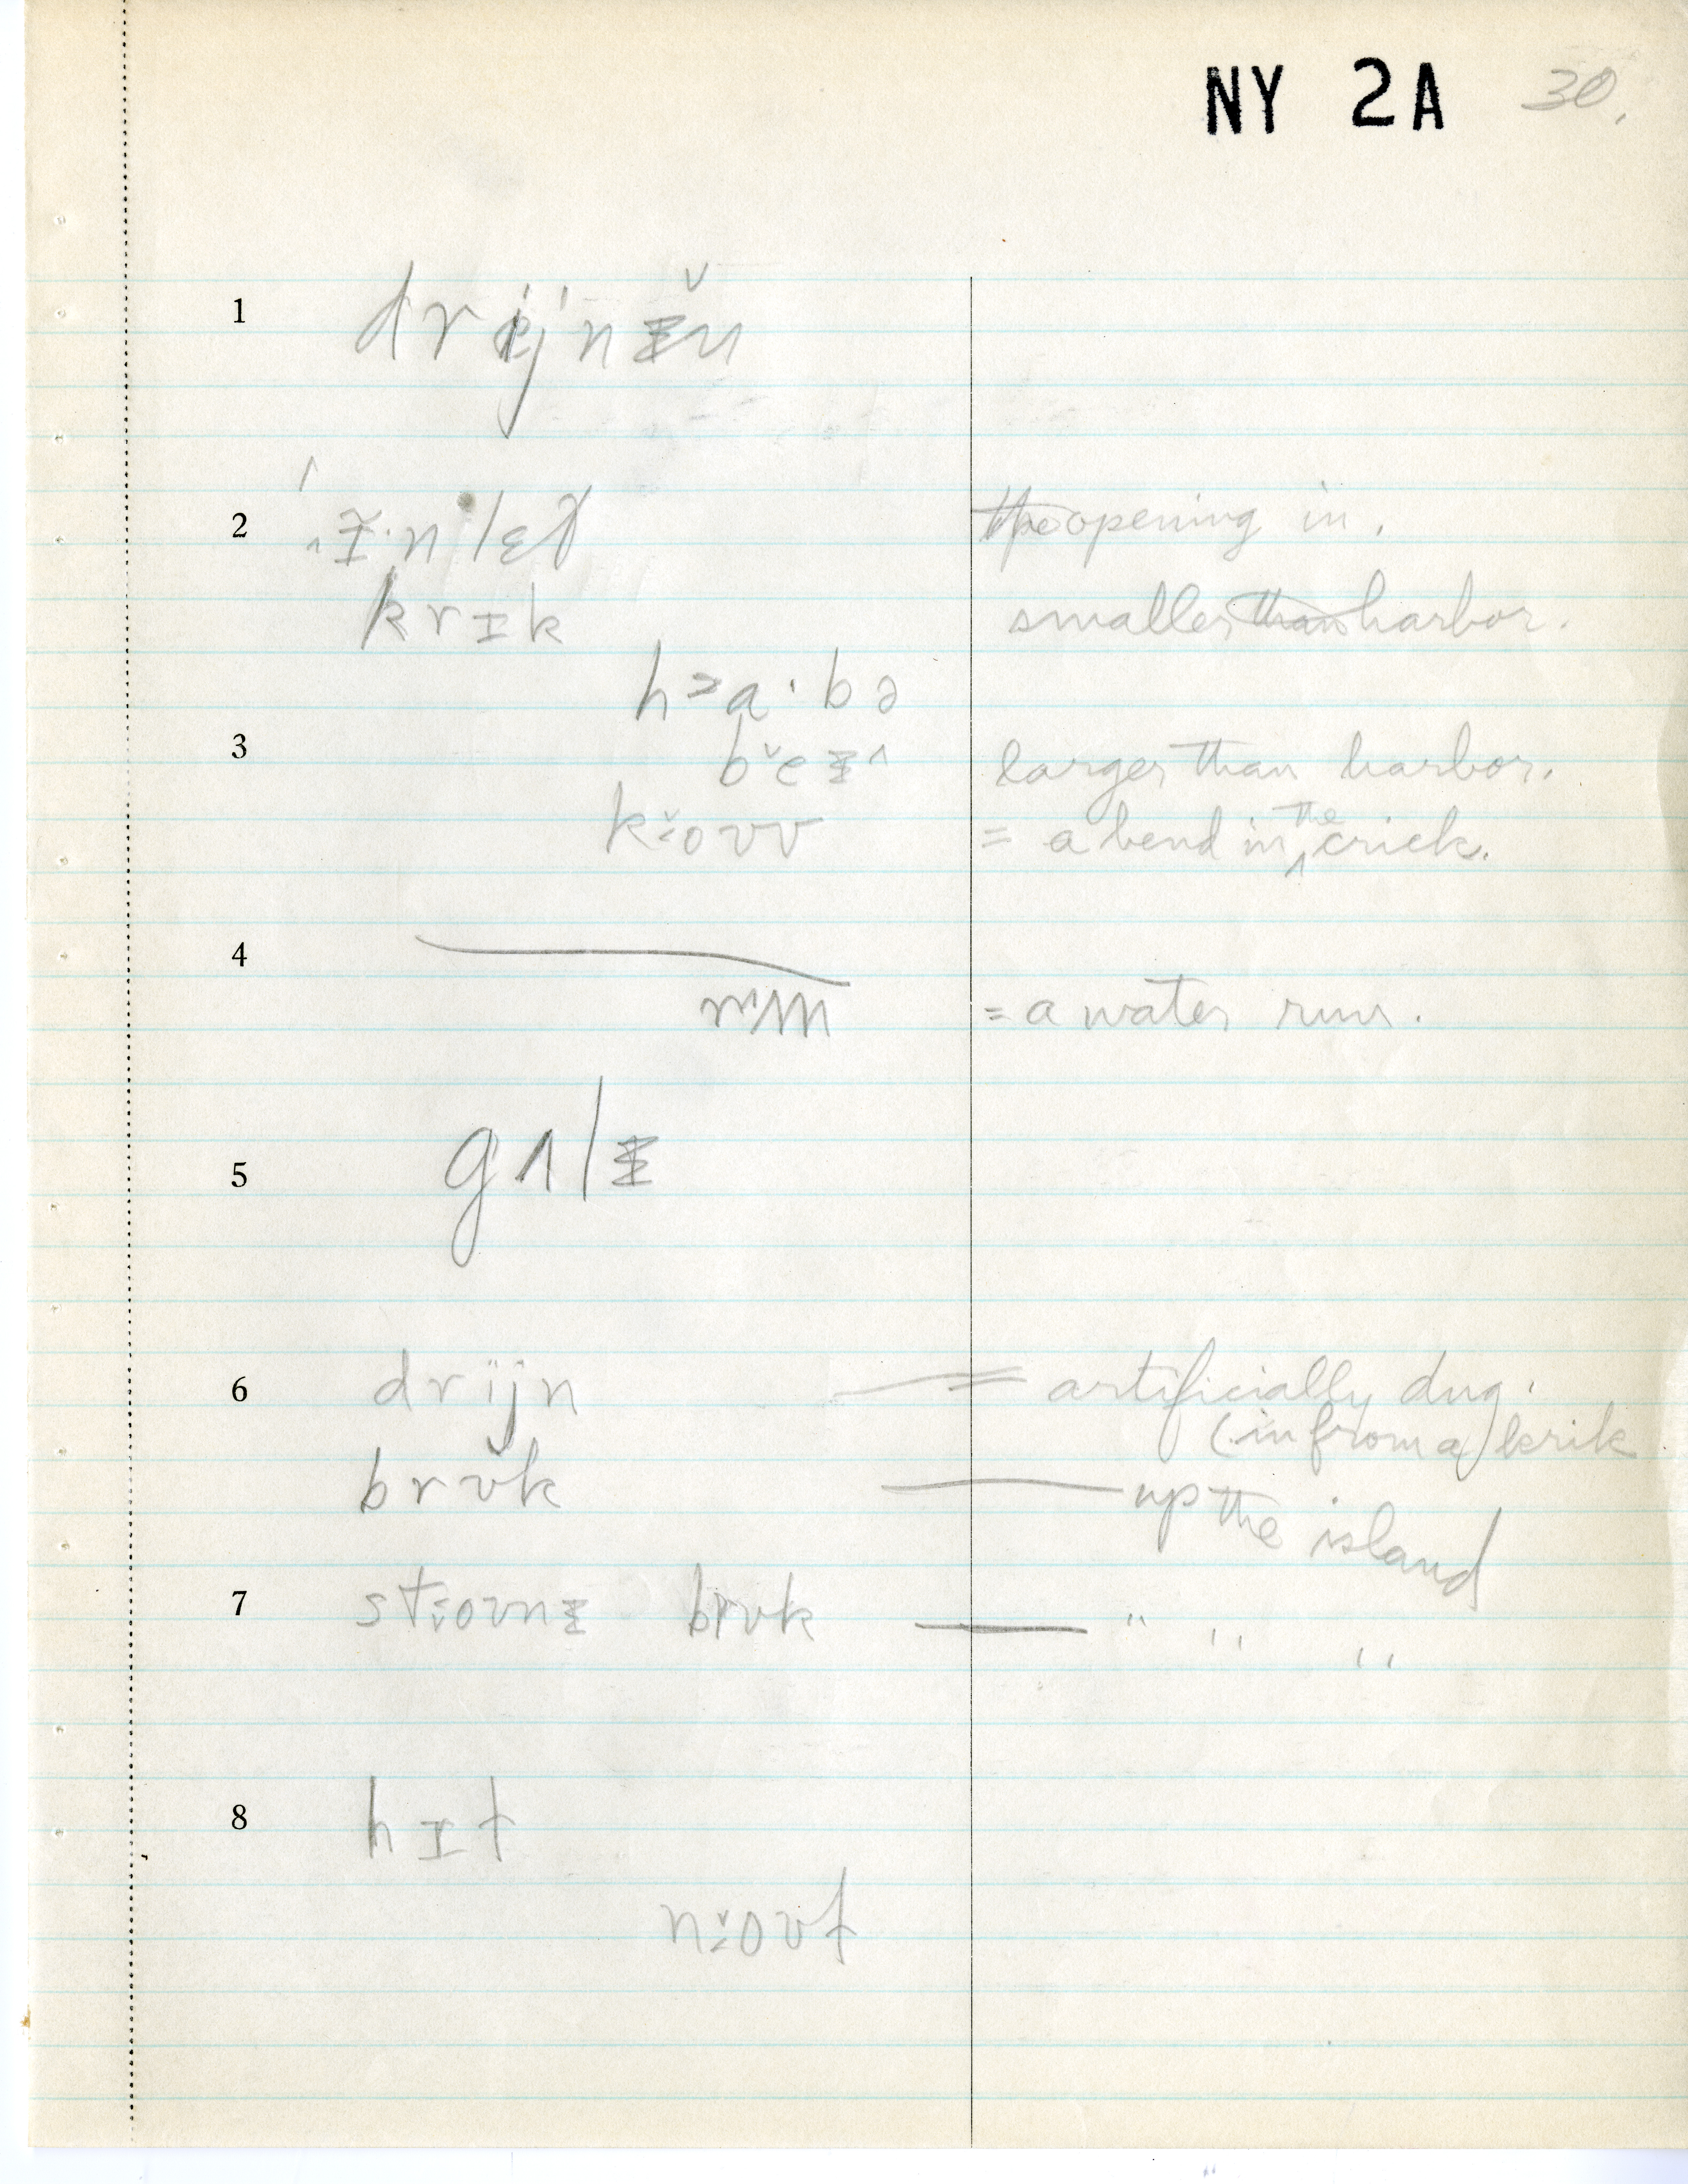 NY 2A 30.
1 drɨj'nɨ̵n
2 ɪ·nlɛt opening in.
krɪk smaller than harbor.
h>a·bə
3 beɨ^ larger than harbor.
koʊv = a bend in the crick.
4 rʌn = a water run.
5 gʌlɨ
6 drijn = artificially dug.
(in from a) krik
brʊk — up the island
7 stoʊnɨ brʊk — " " "
8 hɪt
noʊt